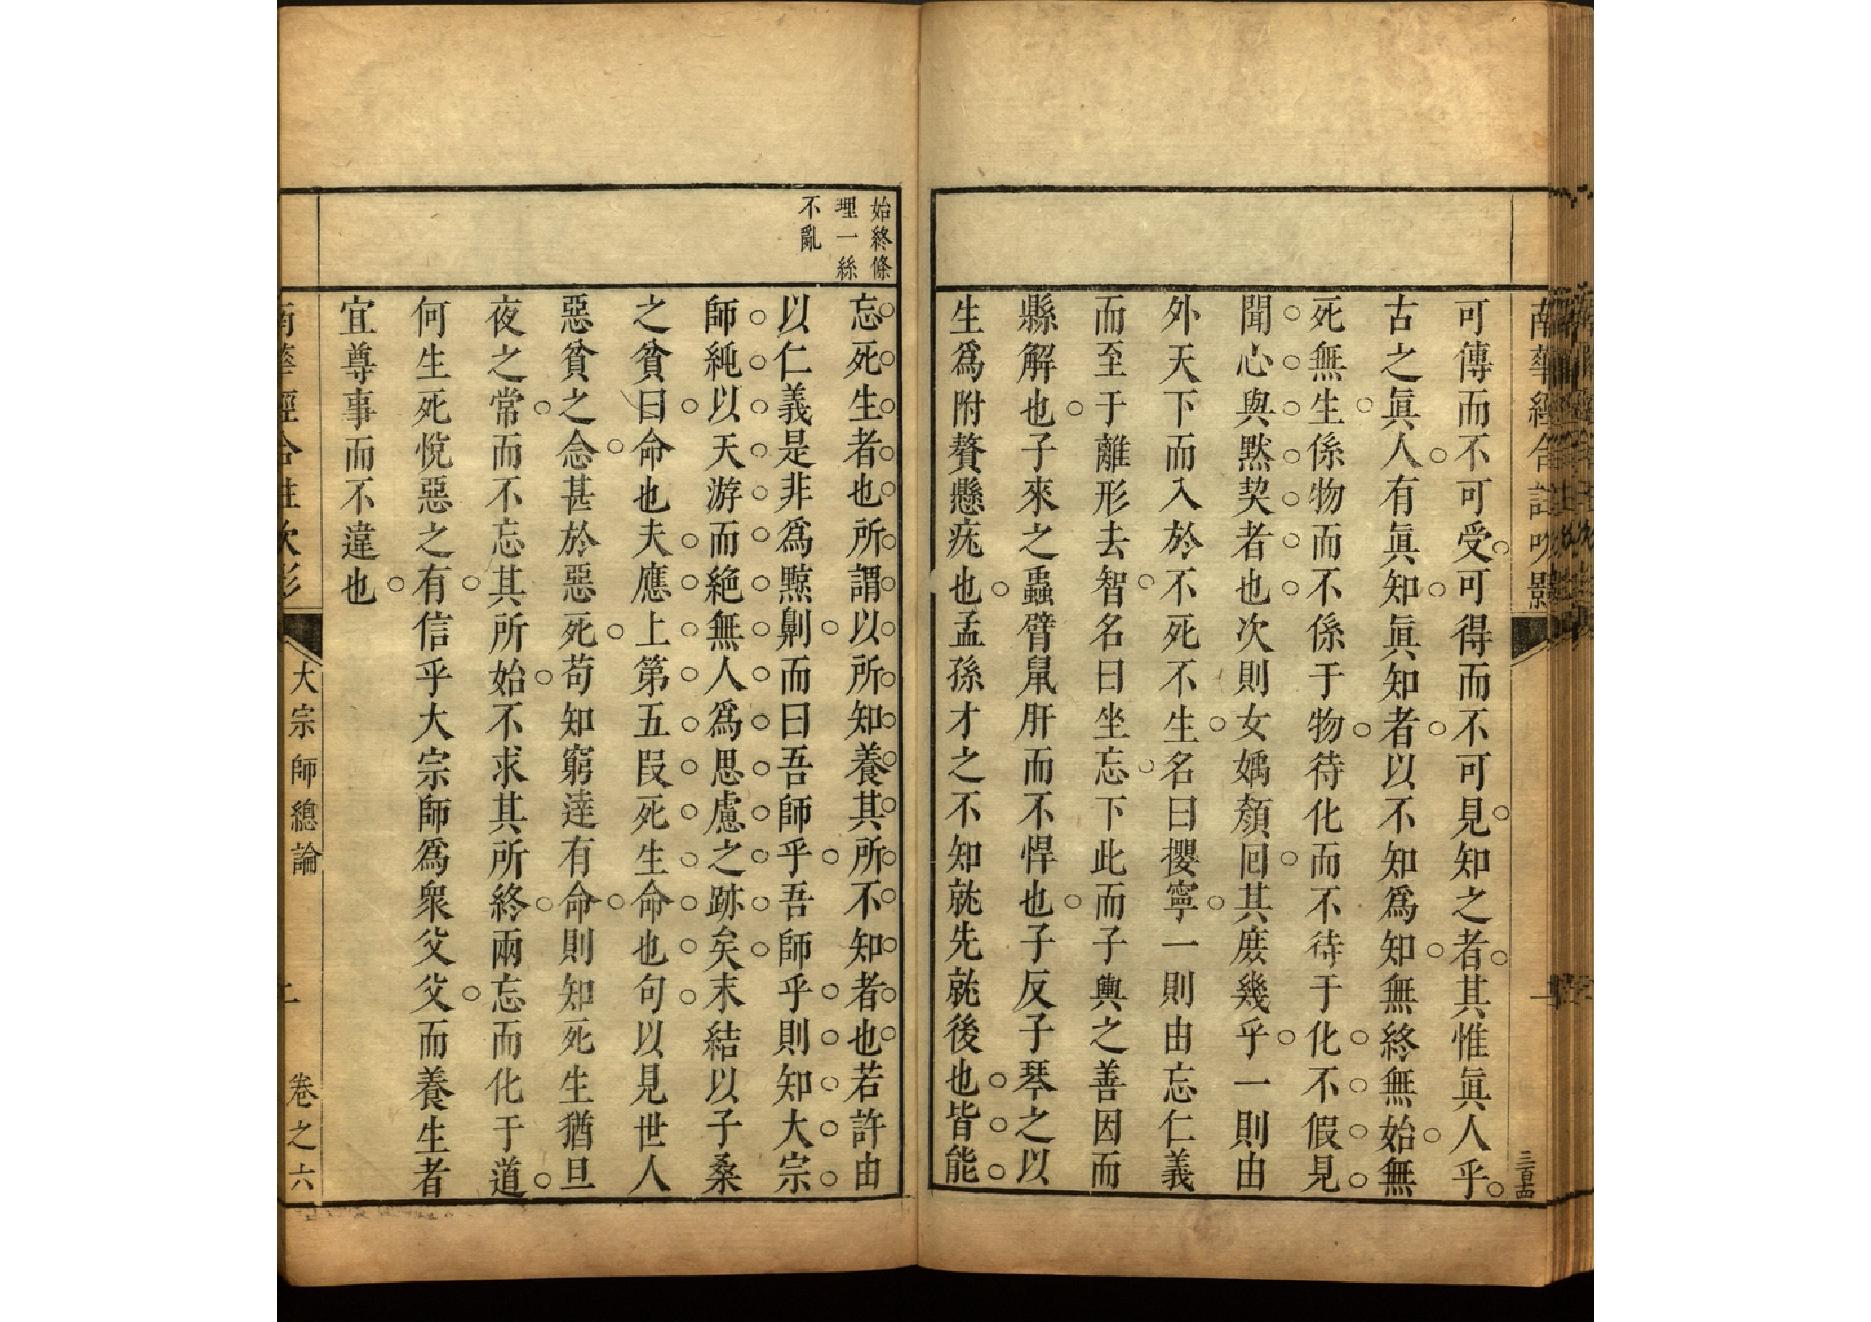 南華經合註吹影
一
三百十四
可傳而不可受可得而不可見知之者其惟眞人乎
古之眞人有眞知眞知者以不知爲知無終無始無
死無生係物而不係于物待化而不待于化不假見
聞心與默契者也次則女媀顏回其庶幾乎一則由
外天下而入於不死不生名曰攖寧一則由忘仁義
而至于離形去智名曰坐忘下此而子輿之善因而
縣解也子來之蟲臂鼠肝而不悍也子反子琴之以
生爲附贅懸疣也孟孫才之不知就先就後也皆能
始終條
理一絲
不亂
忘死生者也所謂以所知養其所不知者也若許由
以仁義是非爲黥劓而曰吾師乎吾師乎則知大宗
師純以天游而絶無人爲思慮之跡矣末結以子桑
之貧曰命也夫應上第五段死生命也句以見世人
惡貧之念甚於惡死苟知窮達有命則知死生猶旦
夜之常而不忘其所始不求其所終兩忘而化于道
何生死悅惡之有信乎大宗師爲衆父父而養生者
宜尊事而不違也
南華經合註吹影
大宗師總論
卷之六